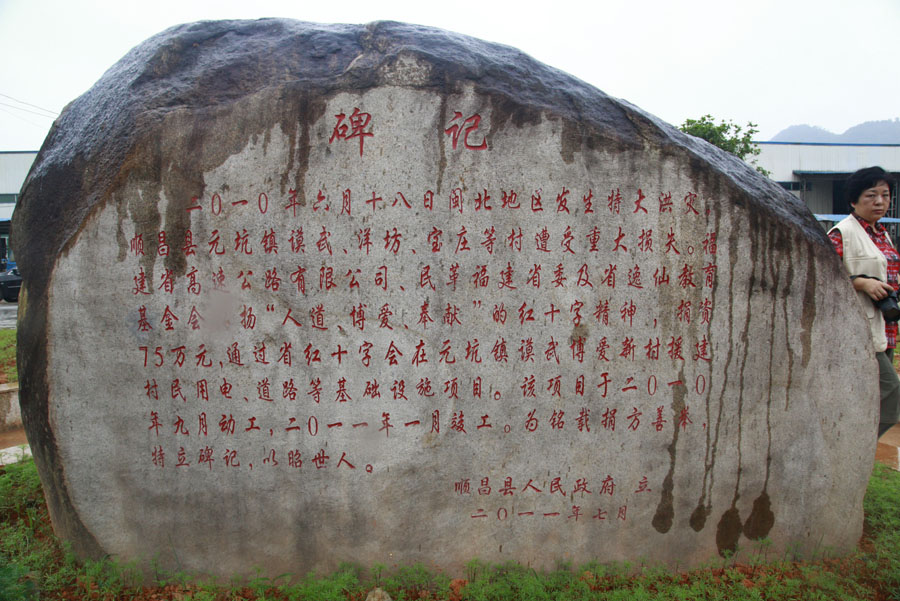 碑记
二〇一〇年六月十八日闽北地区发生特大洪灾，
顺昌县元坑镇谟武、洋坊、宝庄等村遭受重大损失。福
建省高速公路有限公司、民革福建省委及省逸仙教育
基金会 扬“人道、博爱、奉献”的红十字精神，捐资
75万元，通过省红十字会在元坑镇谟武博爱新村援建
村民用电、道路等基础设施项目。该项目于二〇一〇
年九月动工，二〇一一年一月竣工。为铭载捐方善举，
特立碑记，以昭世人。
顺昌县人民政府 立
二〇一一年七月